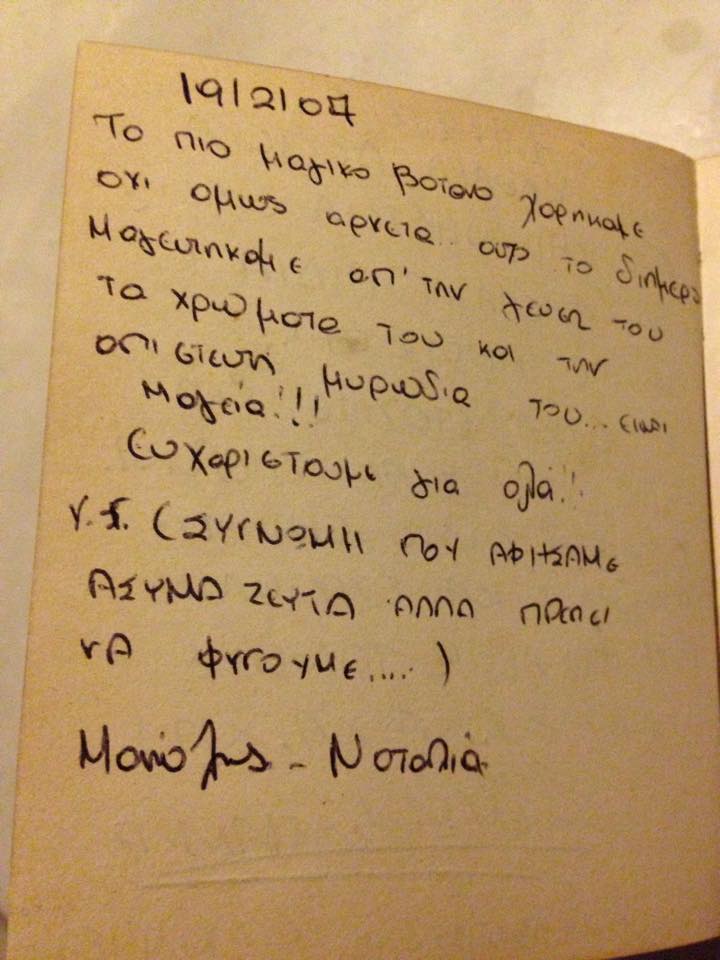 19/2/07
Το πιο μαγικο βοτανο χαρηκαμε
οχι ομως αρκετα αυτο το διημερο
Μαγευτηκαμε απ' την γευση του
τα χρωματα του και την
απιστευτη μυρωδια του... ειναι
μαγεια!!!
Ευχαριστουμε για ολα!!
Υ.Γ. (ΣΥΓΝΩΜΗ ΠΟΥ ΑΦΗΣΑΜΕ
ΑΣΥΜΑΖΕΥΤΑ ΑΛΛΑ ΠΡΕΠΕΙ
ΝΑ ΦΥΓΟΥΜΕ....)
Μανώλης - Ναταλιά